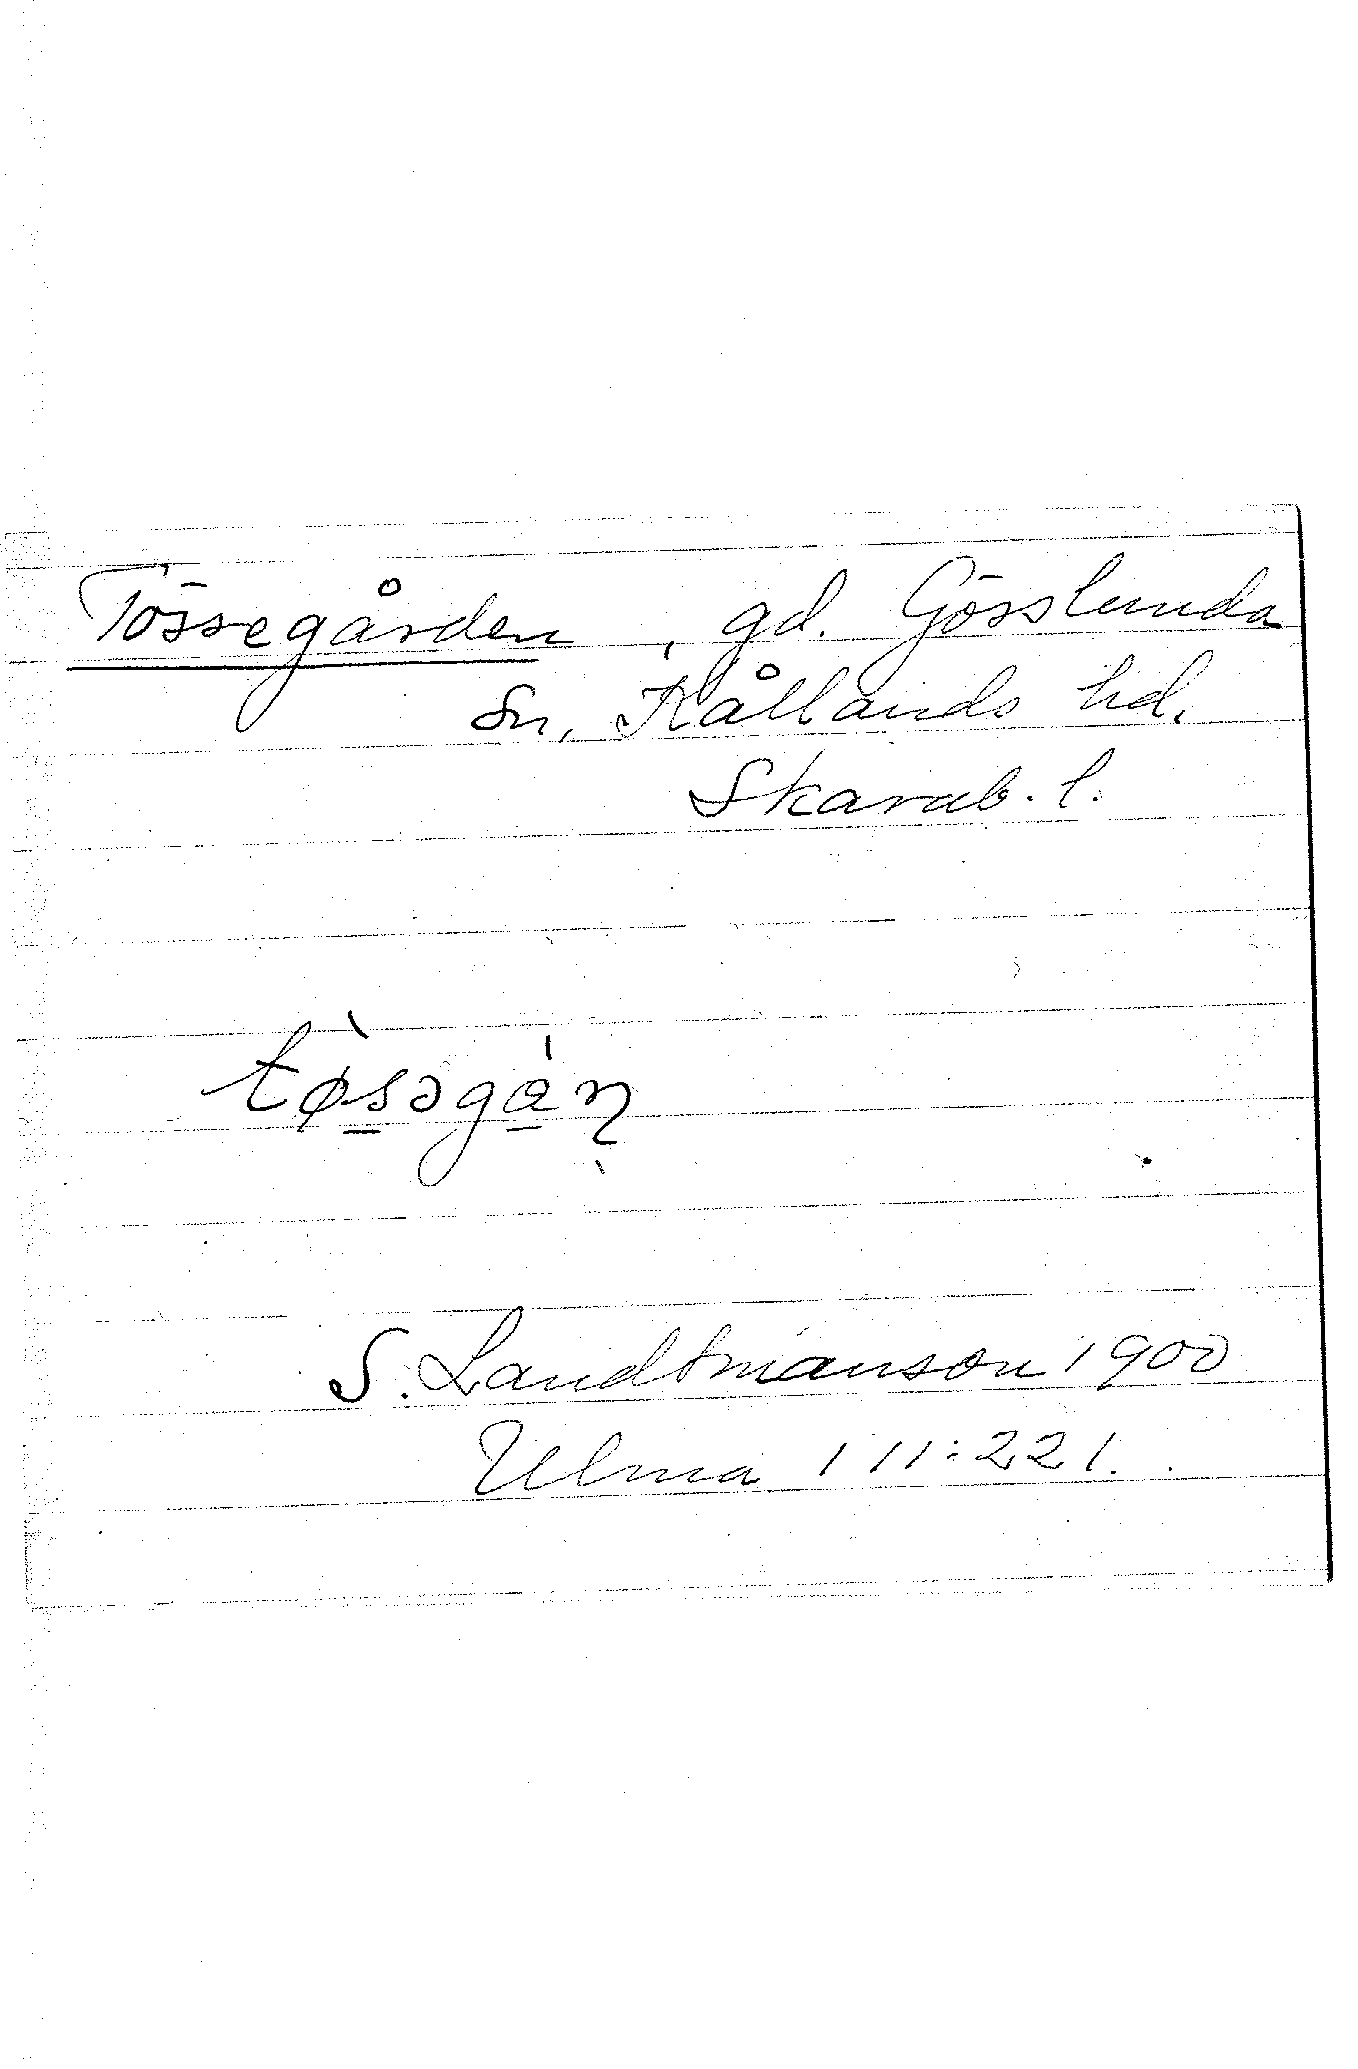 Tössegården, gd. Gösslunda
sn, Kållands hd.
Skarab. l.
tø̀s̱əgá̱ṇ
S. Landtmanson 1900
Ulma 111:221.